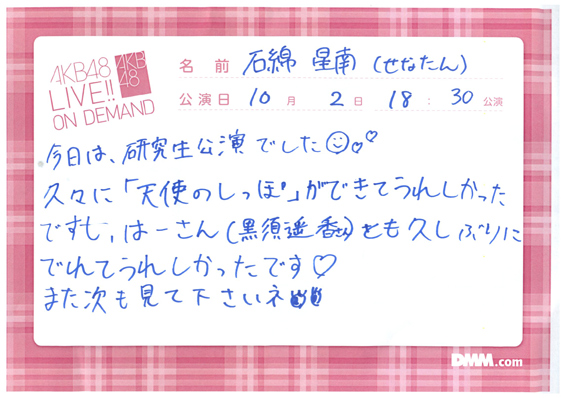 AKB48
LIVE!!
ON DEMAND
AKB
48
名前 石綿 星南 (せなたん)
公演日 10月 2日 18:30公演
今日は、研究生公演でした
久々に「天使のしっぽ」ができてうれしかった
ですし、はーさん(黒須遥香さん)とも久しぶりに
でれてうれしかったです♡
また次も見て下さいネ
DMM.com